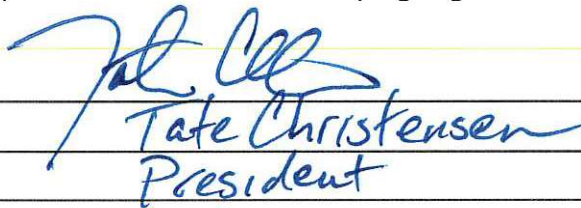 Tate Christensen
President